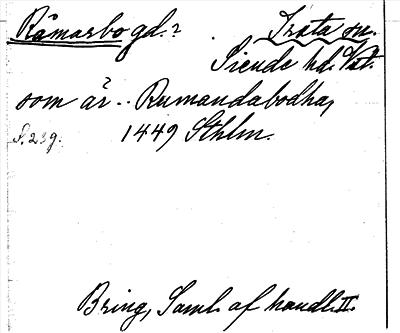 Råmarbo gd.? Irsta sn.
Siende hd. Vst.
som är .. Rumandabodha,
S. 239. 1449 Sthlm.
Bring, Saml. af handl. II.